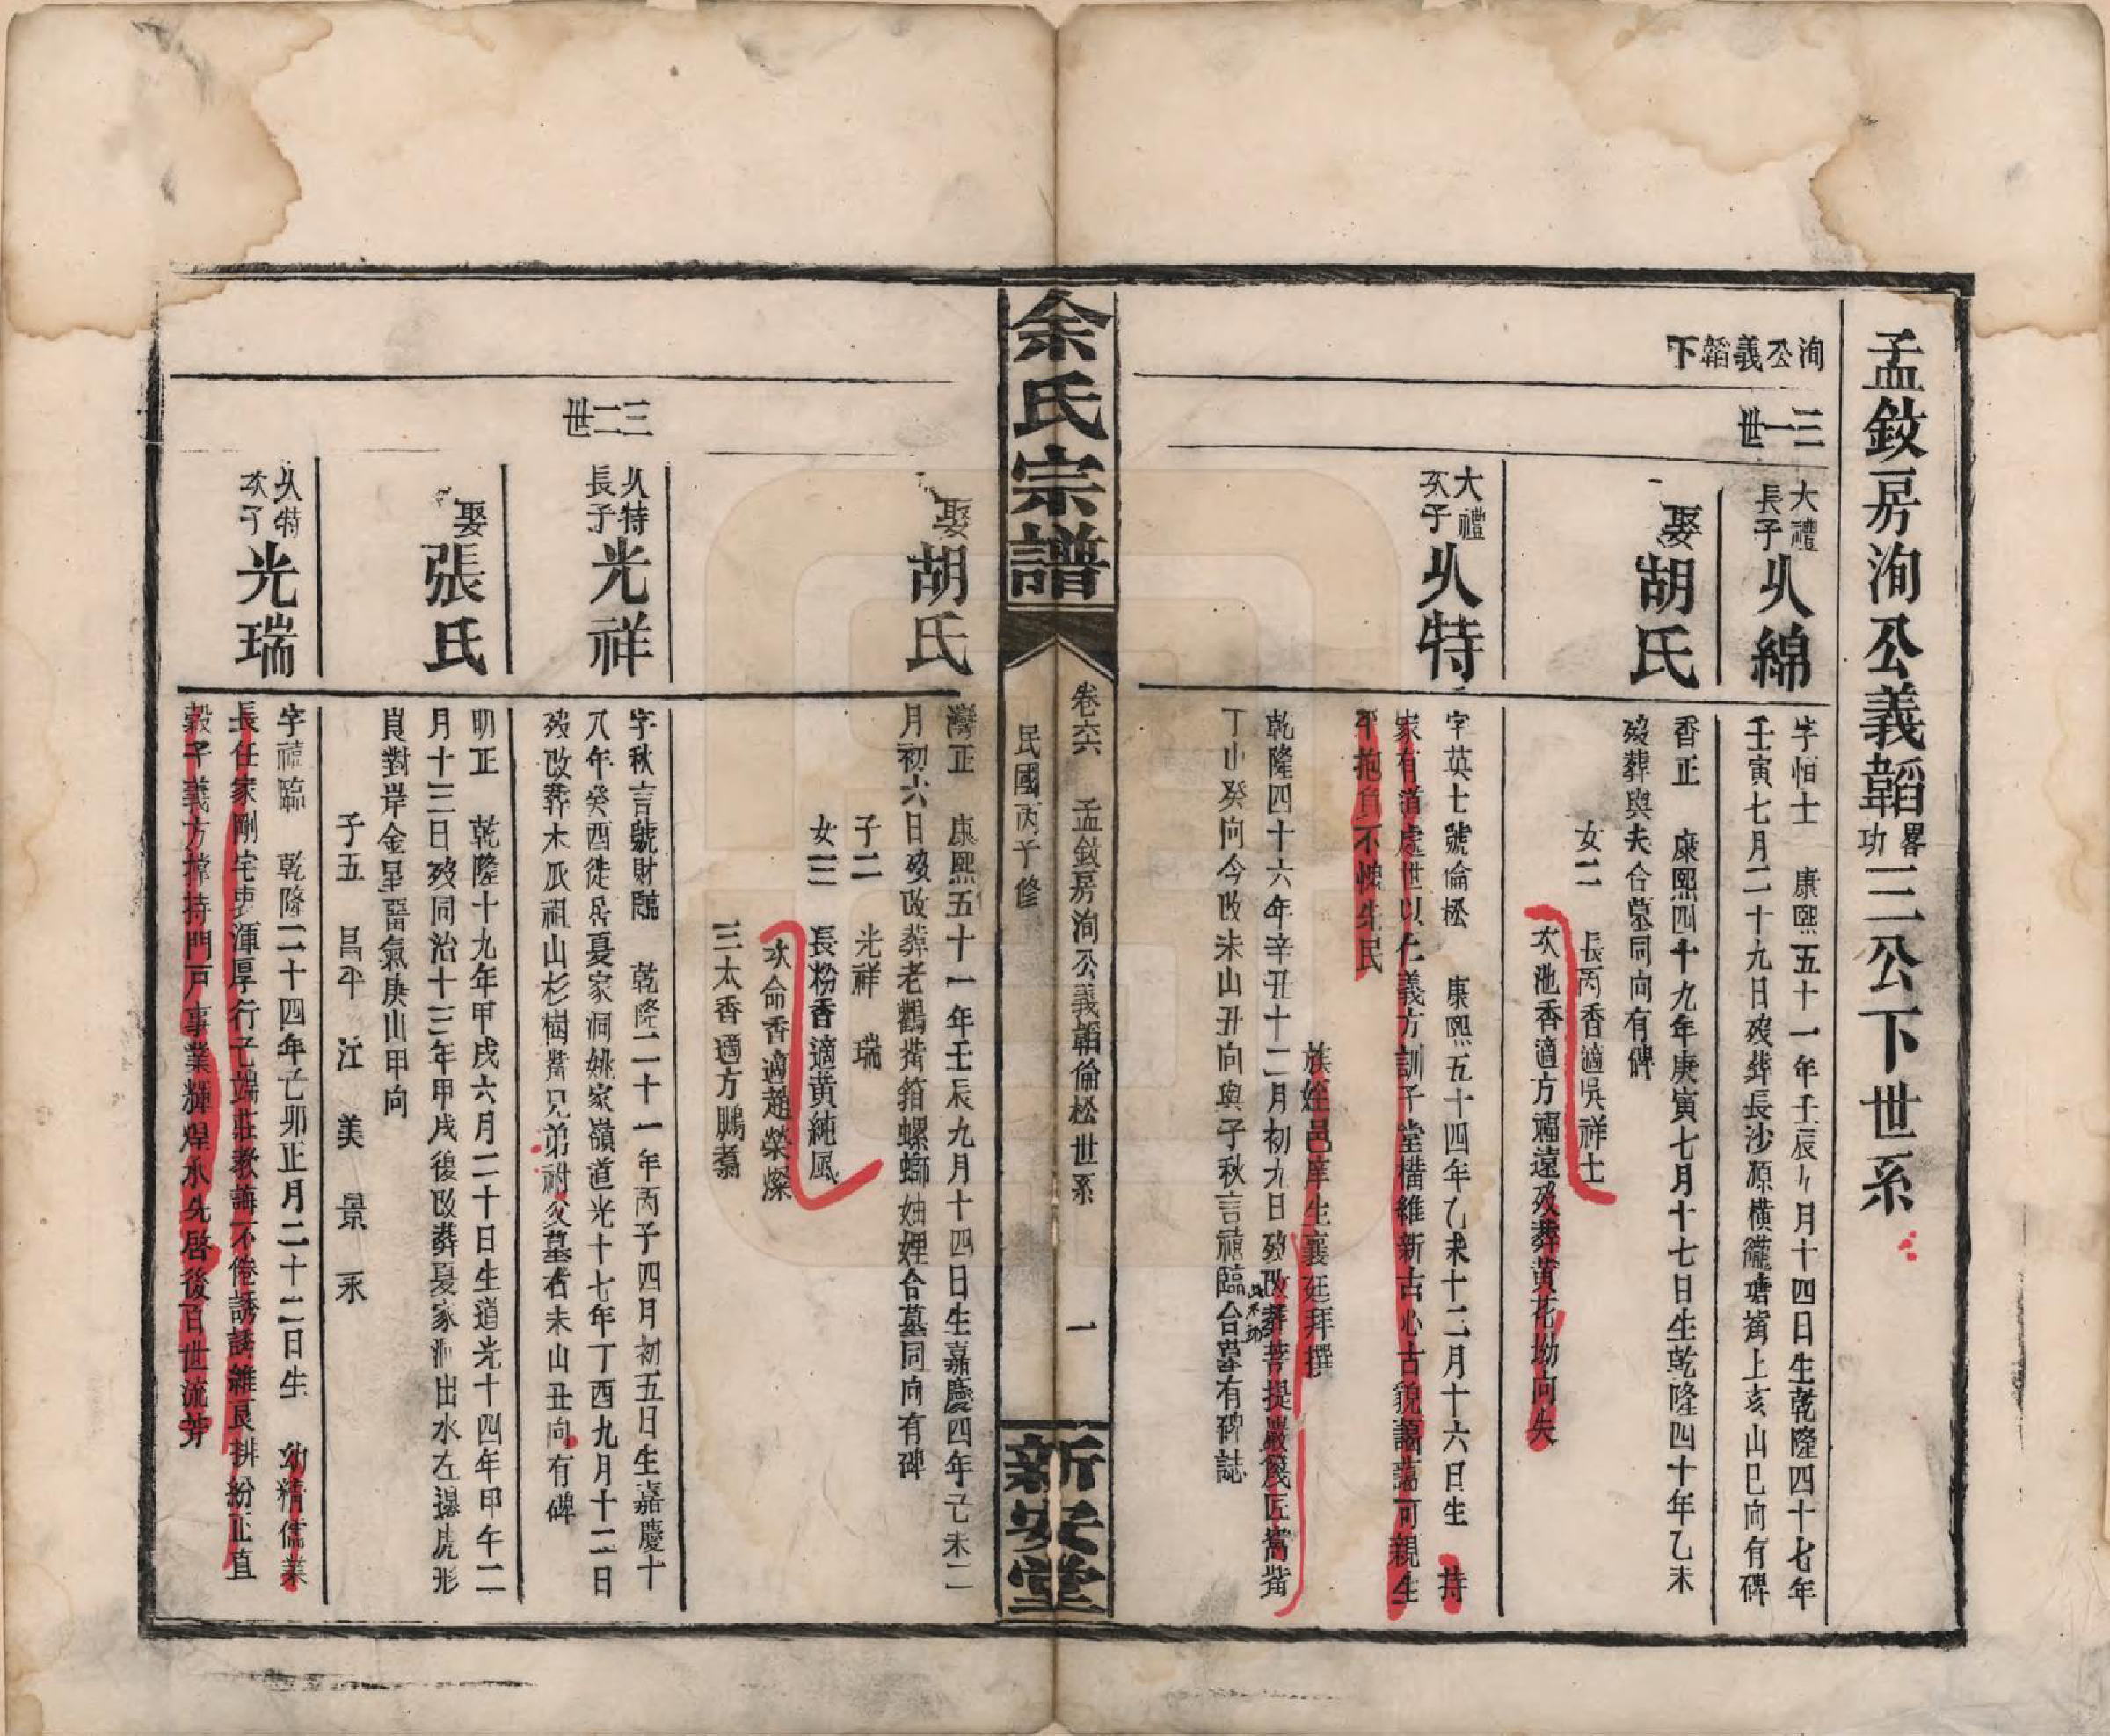 孟釹房洵公義韜畧功三公下世系
洵公義韜下
三一世
大禮長子㕥綿
字怕士　康熙五十一年壬辰八月十四日生乾隆四十七年
壬寅七月二十九日歿葬長沙源橫瓏塘嘴上亥山巳向有碑
娶胡氏
香正　康熙四十九年庚寅七月十七日生乾隆四十年乙未
歿葬與夫合墓同向有碑
女二　長丙香適吳祥士
次滟香適方福遠歿葬黃花坳向失
大禮次子㕥特
字英士號倫松　康熙五十四年乙未十二月十六日生　持
家有道處世以仁義方訓子堂構維新古心古貌藹藹可親生
平抱負不愧先民
族姪邑庠生襄廷拜撰
乾隆四十六年辛丑十二月初九日歿改葬菩提巖篾匠嵩嘴
丁山癸向今改未山丑向與子秋言禧臨合墓有碑誌
余氏宗譜
卷六　孟釹房洵公義韜倫松世系　一
民國丙子修
新安堂
娶胡氏
灣正　康熙五十一年壬辰九月十四日生嘉慶四年己未二
月初六日歿改葬老鸛嘴箝螺螄妯娌合墓同向有碑
子二　光祥　瑞
女三　長枌香適黃純風
次命香適趙榮燦
三太香適方鵬翥
三二世
㕥特長子光祥
字秋言號財臨　乾隆二十一年丙子四月初五日生嘉慶十
八年癸酉徙居夏家洞姚家嶺道光十七年丁酉九月十二日
歿改葬木瓜祖山杉樹嘴兄弟祔父墓右未山丑向有碑
娶張氏
明正　乾隆十九年甲戌六月二十日生道光十四年甲午二
月十三日歿同治十三年甲戌復改葬夏家洞出水左邊虎形
肖對岸金星罾氣庚山甲向
子五　昌平　江　美　景　永
㕥特次子光瑞
字禧臨　乾隆二十四年己卯正月二十二日生　幼精儒業
長任家剛宅衷渾厚行己端莊教誨不倦誘諉維艮排紛正直
穀子義方撐持門戶事業輝煌承先啓後百世流芳